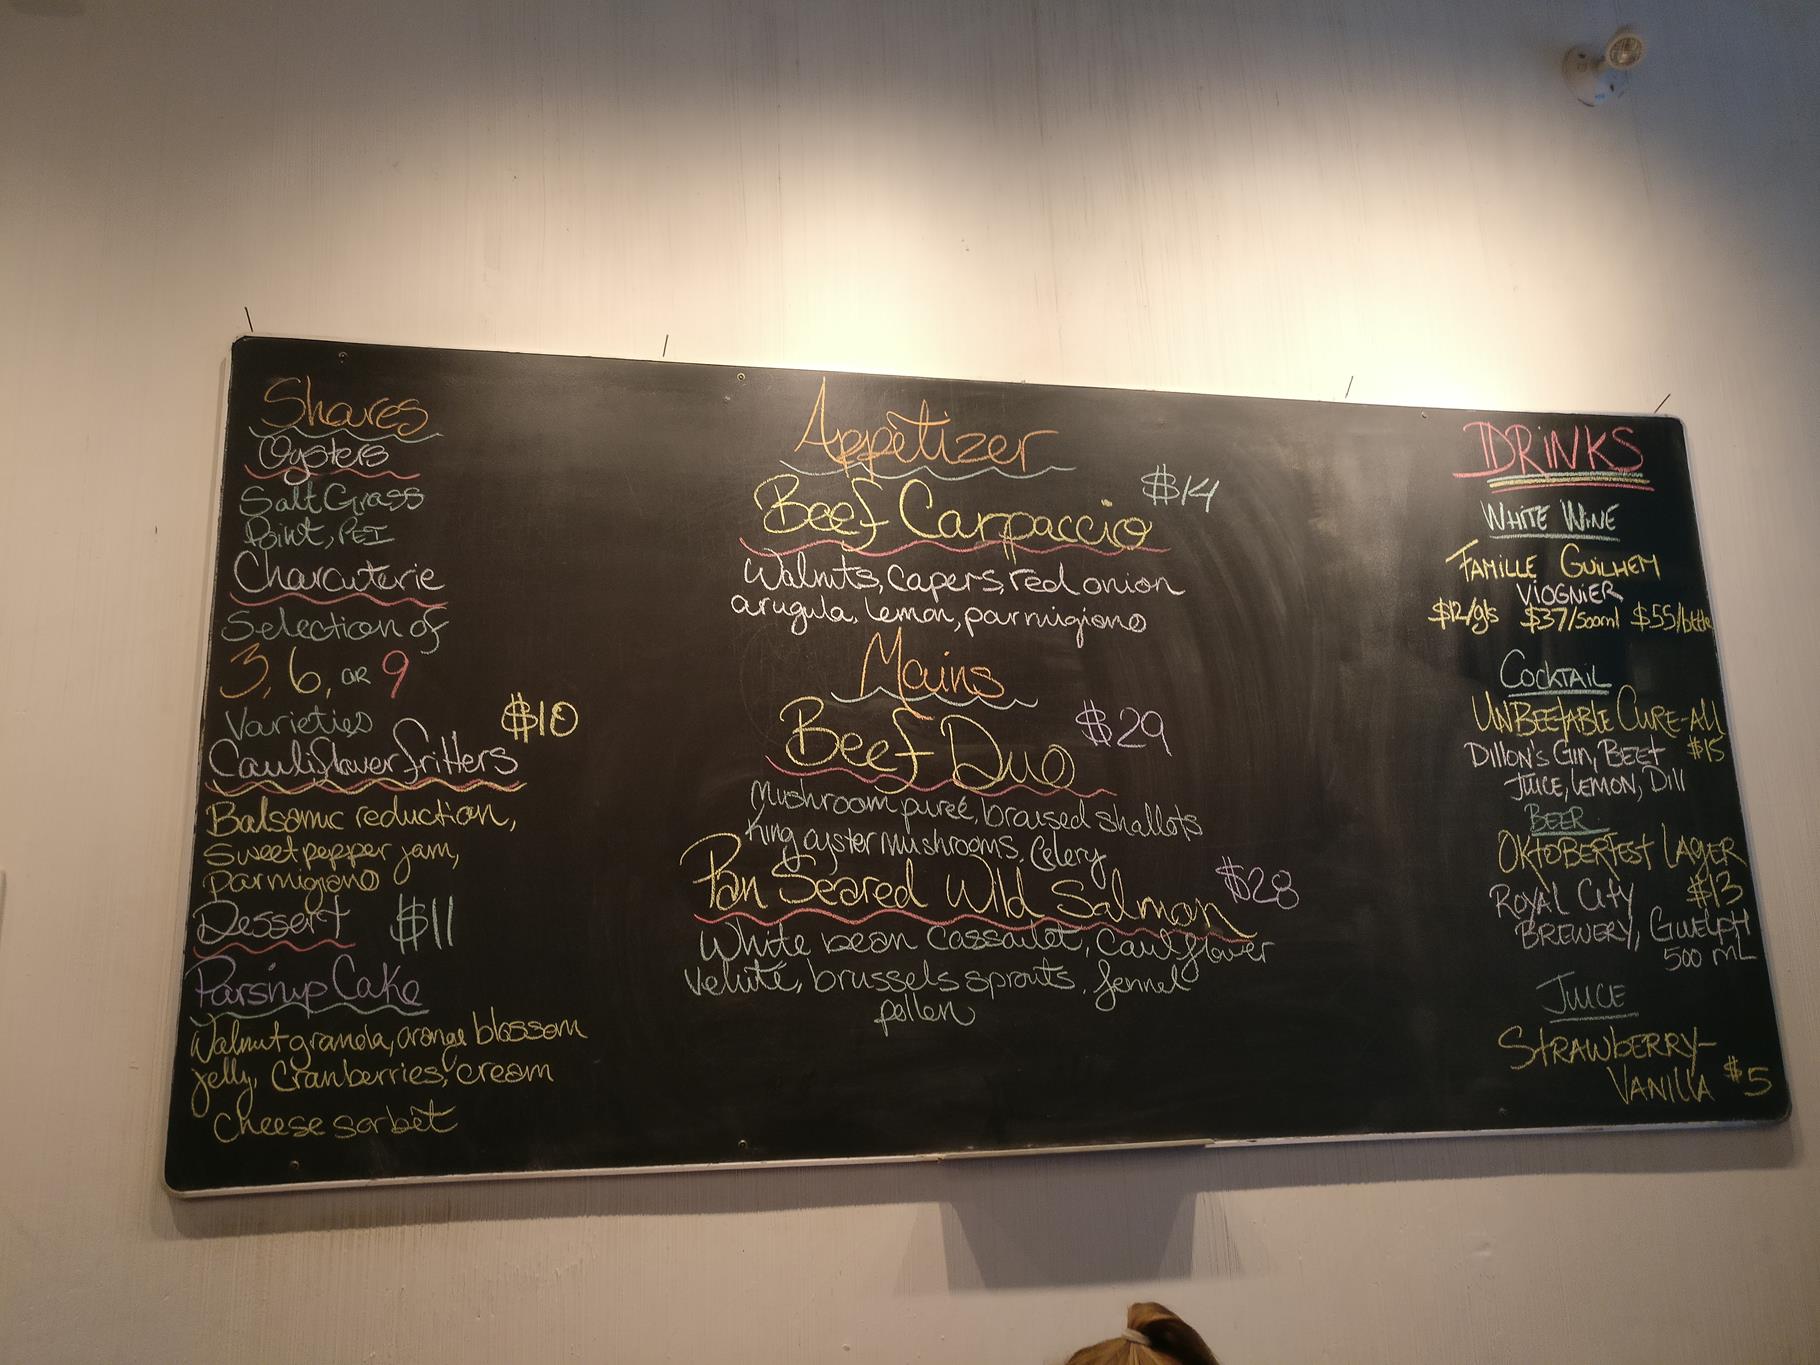 Shares
Oysters
Salt Grass
Point, PEI
Charcuterie
Selection of
3, 6, OR 9
Varieties
$10
Cauliflower fritters
Balsamic reduction,
Sweet pepper jam,
parmigiano
Dessert $11
Parsnip Cake
Walnut granola, orange blossom
jelly, Cranberries, cream
cheese sorbet
Appetizer
Beef Carpaccio $14
Walnuts, capers, red onion
arugula, lemon, parmigiano
Mains
Beef Duo $29
Mushroom pureé, braised shallots
King oyster mushrooms, Celery
Pan Seared Wild Salmon $28
White bean Cassoulet, Cauliflower
Velvité, brussels sprouts, fennel
pollen
DRINKS
WHITE WINE
FAMILLE GUILHEM
VIOGNIER
$12/gls $37/500ml $55/bttle
COCKTAIL
UNBEETABLE CURE-All
$15
DILLON'S GIN, BEET
JUICE, LEMON, Dill
BEER
OKTOBERFEST LAGER
$13
ROYAL CITY
BREWERY, GUELPH
500 mL
JUICE
STRAWBERRY-
VANILLA $5